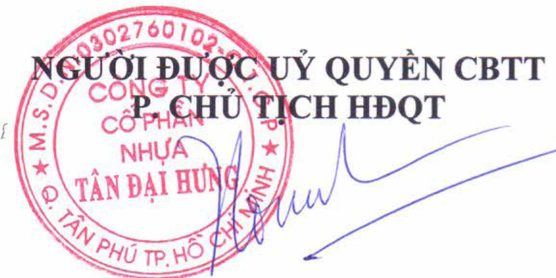 NGƯỜI ĐƯỢC UỶ QUYỀN CBTT
P. CHỦ TỊCH HĐQT
M.S.D.N:0302760102-C.T.C.P
CÔNG TY
CỔ PHẦN
NHỰA
TÂN ĐẠI HƯNG
Q. TÂN PHÚ TP. HỒ CHÍ MINH